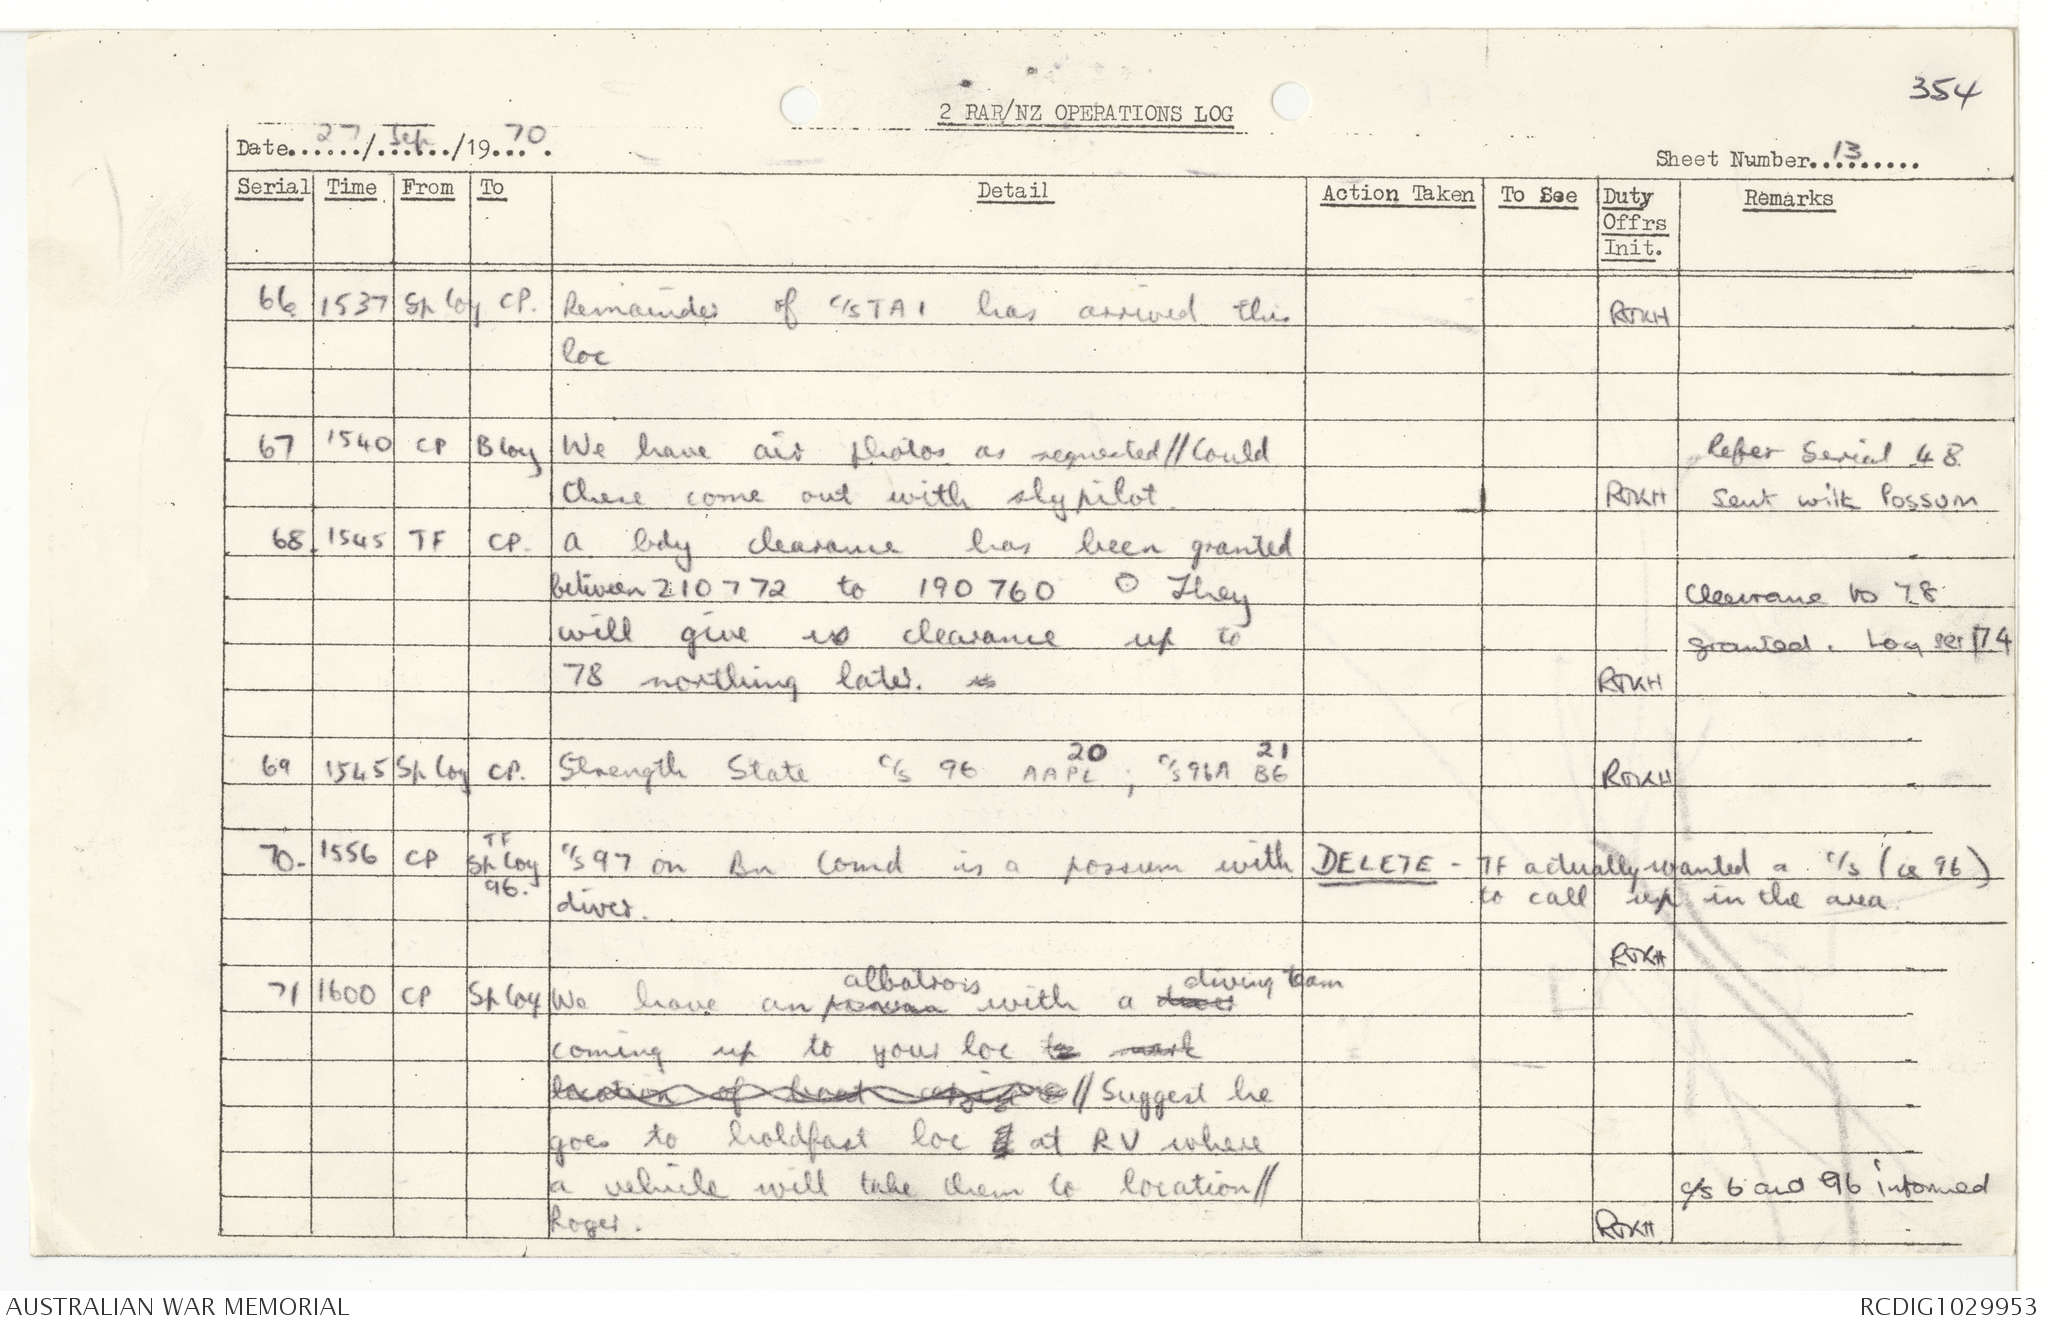 354
2 RAR/NZ OPERATIONS LOG
Date 27/Sep/1970.
Sheet Number 13
Serial Time From To Detail Action Taken To See Duty Offrs Init. Remarks
66 1537 Sp Coy CP. Remainder of c/s TA1 has arrived this RTKH
loc
67 1540 CP B Coy We have air photos as requested//Could Refer Serial 48
these come out with skypilot. RTKH Sent with Possum
68. 1545 TF CP. A bdy clearance has been granted
between 210772 to 190760 O They Clearance to 78
will give us clearance up to granted. Log ser 174
78 northing later. RTKH
69 1545 Sp Coy CP. Strength State c/s 96 AAPL 20 ; c/s 96A BG 21 RTKH
70. 1556 CP TF Sp Coy 96. c/s 97 on Bn Comd is a possum with DELETE - TF actually wanted a c/s (ie 96)
diver. to call up in the area.
RTKH
albatross diving team
71 1600 CP Sp Coy We have an possum with a diver
coming up to your loc to mark
location of boat //Suggest he
goes to holdfast loc at RV where
a vehicle will take them to location// c/s 6 and 96 informed
Roger. RTKH
AUSTRALIAN WAR MEMORIAL
RCDIG1029953